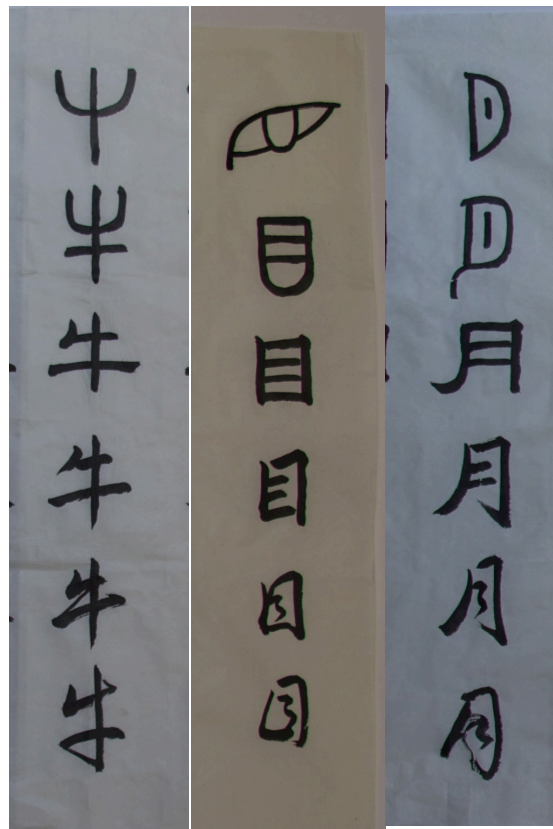 牛
牛
牛
牛
牛
牛
目
目
目
目
目
目
月
月
月
月
月
月